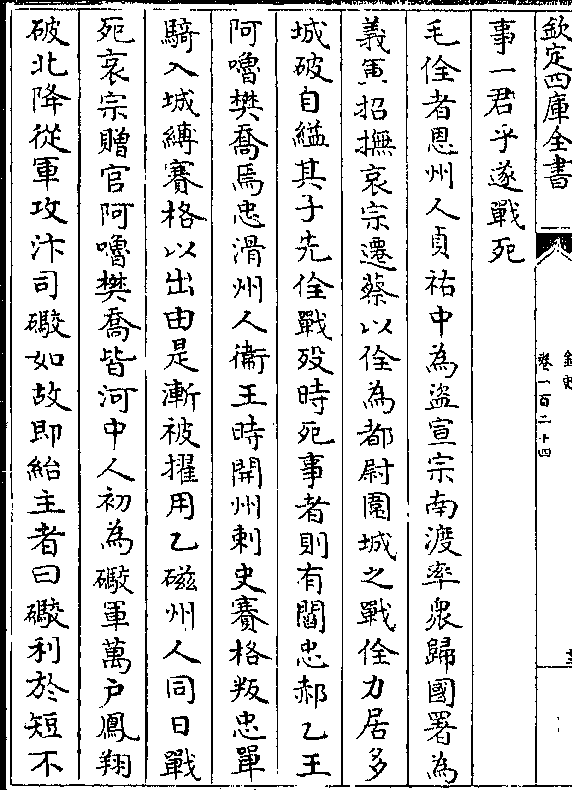 欽定四庫全書
金史
卷一百二十四
事一君乎遂戰死
毛佺者恩州人貞祐中為盜宣宗南渡率衆歸國署為
義軍招撫哀宗遷蔡以佺為都尉圍城之戰佺力居多
城破自縊其子先佺戰歿時死事者則有閻忠郝乙王
阿嚕樊喬焉忠滑州人衞王時開州刺史賽格叛忠單
騎入城縛賽格以出由是漸被擢用乙磁州人同日戰
死哀宗贈官阿嚕樊喬皆河中人初為礮軍萬户鳳翔
破北降從軍攻汴司礮如故即紿主者曰礮利於短不